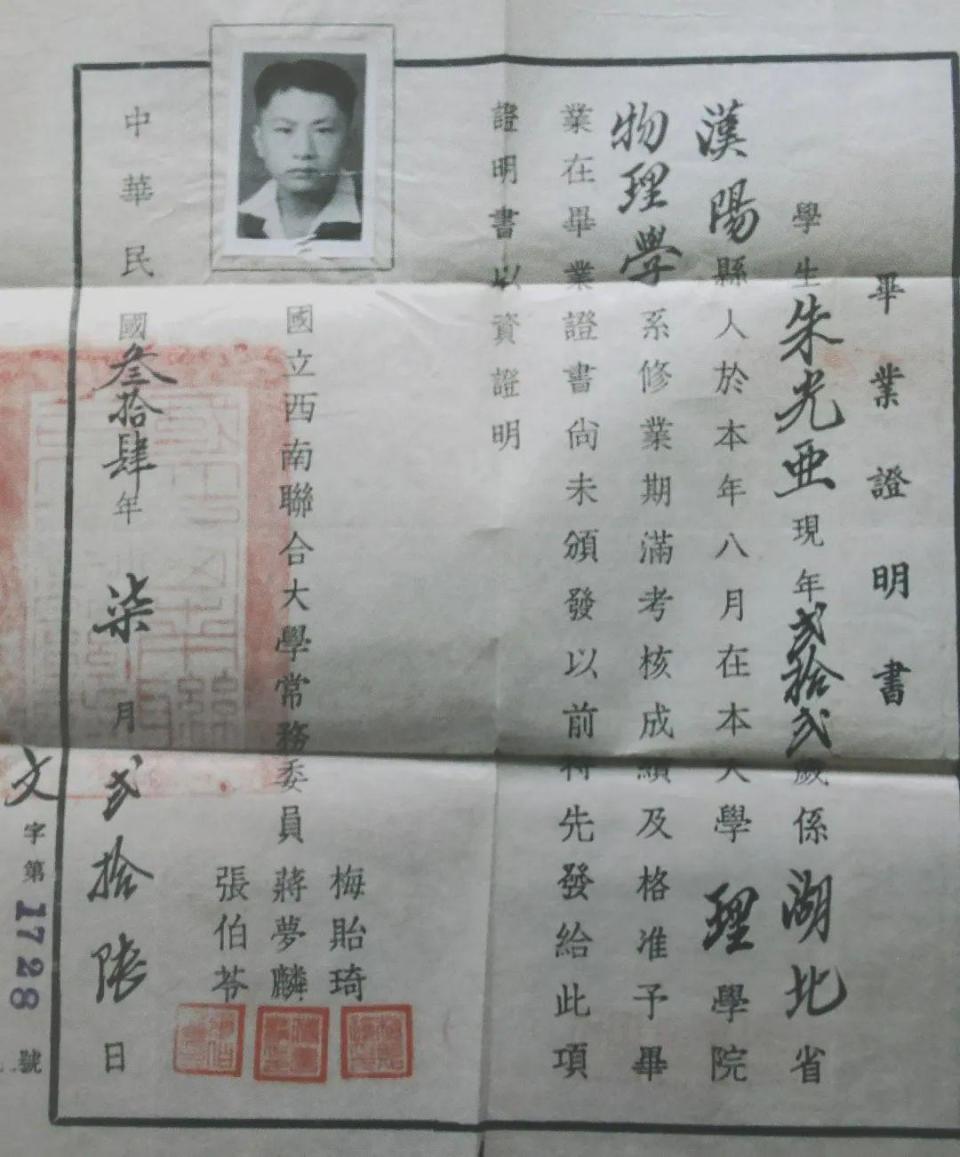 畢業證明書
學生朱光亞現年貳拾貳歲係湖北省
漢陽縣人於本年八月在本大學理學院
物理學系修業期滿考核成績及格准予畢
業在畢業證書尚未頒發以前特先發給此項
證明書以資證明
國立西南聯合大學常務委員
梅貽琦
蔣夢麟
張伯苓
中華民國叁拾肆年柒月貳拾陸日
文字第1728號